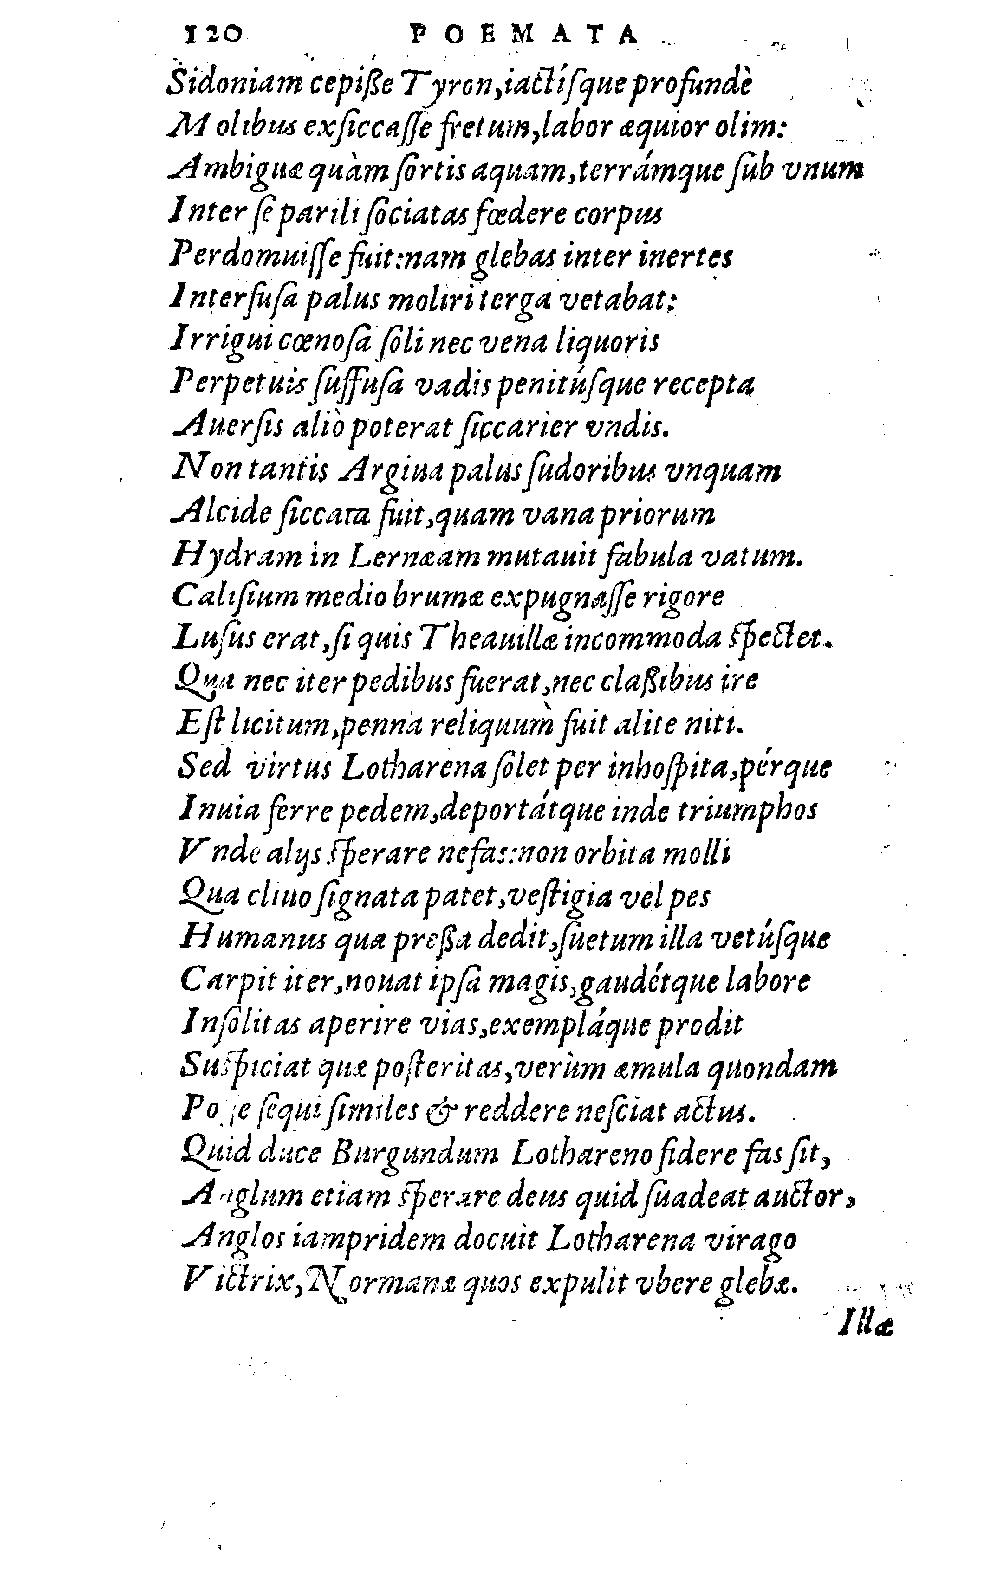 120 POEMATA
Sidoniam cepiſſe Tyron, iactíſque profundè
Molibus exſiccaſſe fretum, labor æquior olim:
Ambiguæ quàm ſortis aquam, terrámque ſub vnum
Inter ſe parili ſociatas fœdere corpus
Perdomuiſſe fuit: nam glebas inter inertes
Interfuſa palus moliri terga vetabat:
Irrigui cœnoſa ſoli nec vena liquoris
Perpetuis ſuffuſa vadis penitúſque recepta
Auerſis aliò poterat ſiccarier vndis.
Non tantis Argiua palus ſudoribus vnquam
Alcide ſiccata fuit, quam vana priorum
Hydram in Lernæam mutauit fabula vatum.
Caliſium medio brumæ expugnaſſe rigore
Luſus erat, ſi quis Theauillæ incommoda ſpectet.
Qua nec iter pedibus fuerat, nec claſſibus ire
Eſt licitum, penna reliquum fuit alite niti.
Sed virtus Lotharena ſolet per inhoſpita, pérque
Inuia ferre pedem, deportátque inde triumphos
Vnde alijs ſperare nefas: non orbita molli
Qua cliuo ſignata patet, veſtigia vel pes
Humanus quæ preſſa dedit, ſuetum illa vetúſque
Carpit iter, nouat ipſa magis, gaudétque labore
Inſolitas aperire vias, exempláque prodit
Suſpiciat quæ poſteritas, verùm æmula quondam
Poſſe ſequi ſimiles & reddere neſciat actus.
Quid duce Burgundum Lothareno fidere fas ſit,
Anglum etiam ſperare deus quid ſuadeat auctor,
Anglos iampridem docuit Lotharena virago
Victrix, Normanæ quos expulit vbere glebæ.
Illæ